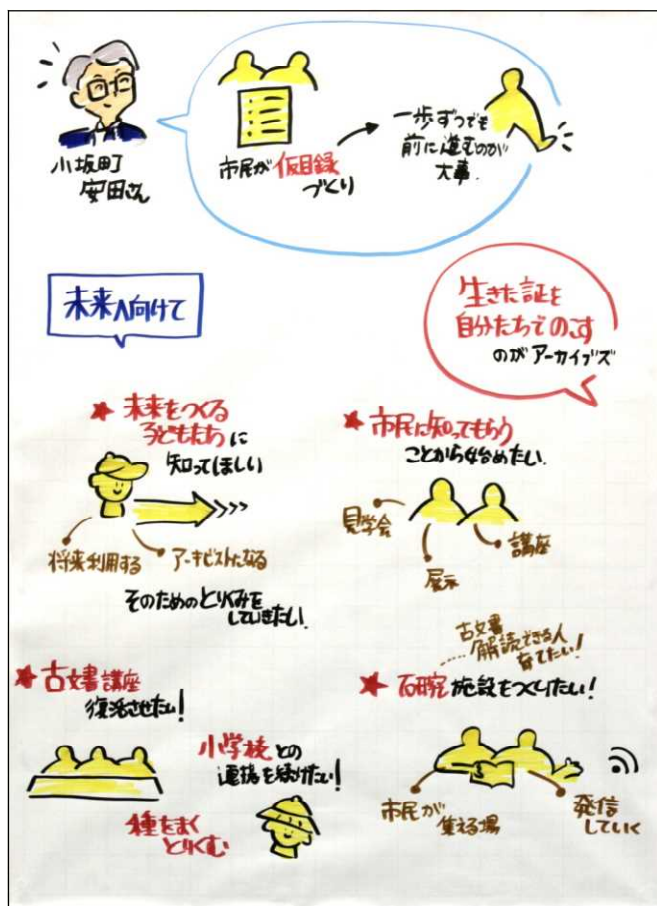 小坂町
安田さん
市民が仮目録
づくり
一歩ずつでも
前に進むのが
大事.
未来へ向けて
生きた証を
自分たちでのこす
のがアーカイブズ
★ 未来をつくる
子どもたちに
知ってほしい
将来利用する
アーキビストになる
そのためのとりくみを
していきたい.
★ 市民に知ってもらう
ことから始めたい.
見学会
展示
講座
★ 古文書講座
復活させたい!
小学校との
連携を続けたい!
種をまく
とりくむ
古文書
解読できる人
育てたい!
★ 研究施設をつくりたい!
市民が
集える場
発信
していく